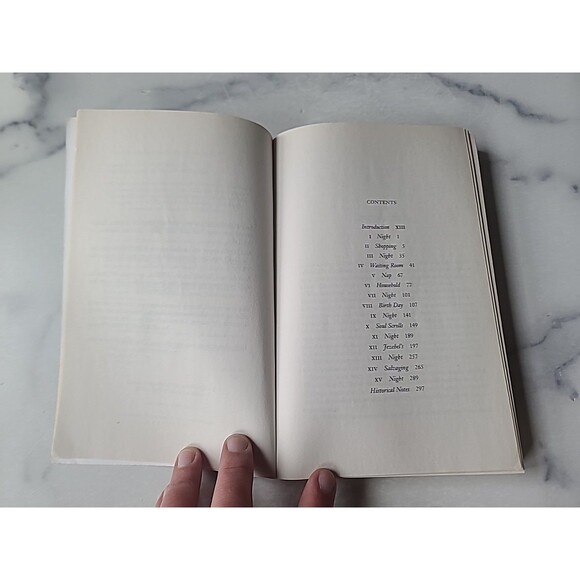 CONTENTS
Introduction XIII
I Night 1
II Shopping 5
III Night 35
IV Waiting Room 41
V Nap 67
VI Household 77
VII Night 101
VIII Birth Day 107
IX Night 141
X Soul Scrolls 149
XI Night 189
XII Jezebel's 197
XIII Night 257
XIV Salvaging 265
XV Night 289
Historical Notes 297